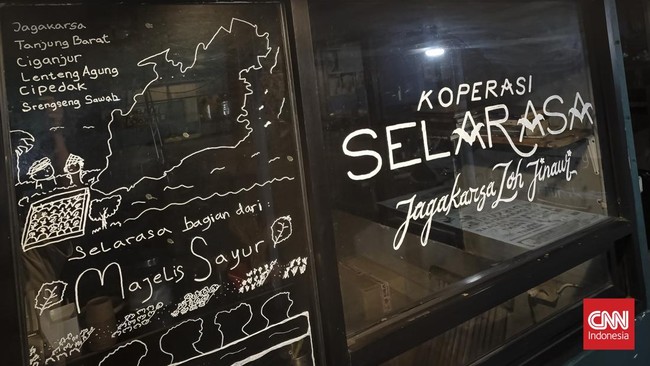 Jagakarsa
Tanjung Barat
Ciganjur
Lenteng Agung
Cipedak
Srengseng Sawah
Selarasa bagian dari:
Majelis Sayur
KOPERASI
SELARASA
Jagakarsa Loh Jinawi
CNN
Indonesia